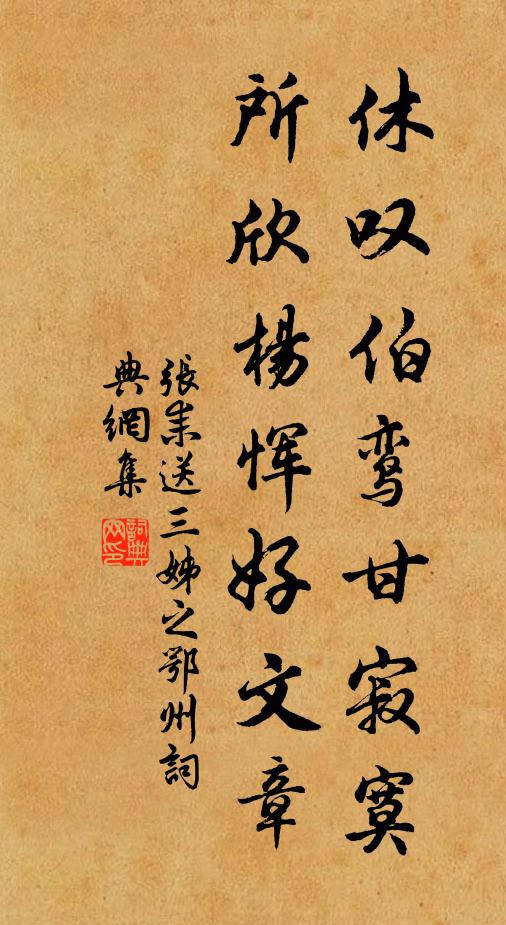 休叹伯鸾甘寂寞
所欣楊恽好文章
張耒送三姊之鄂州詞
典網集
詞典網印